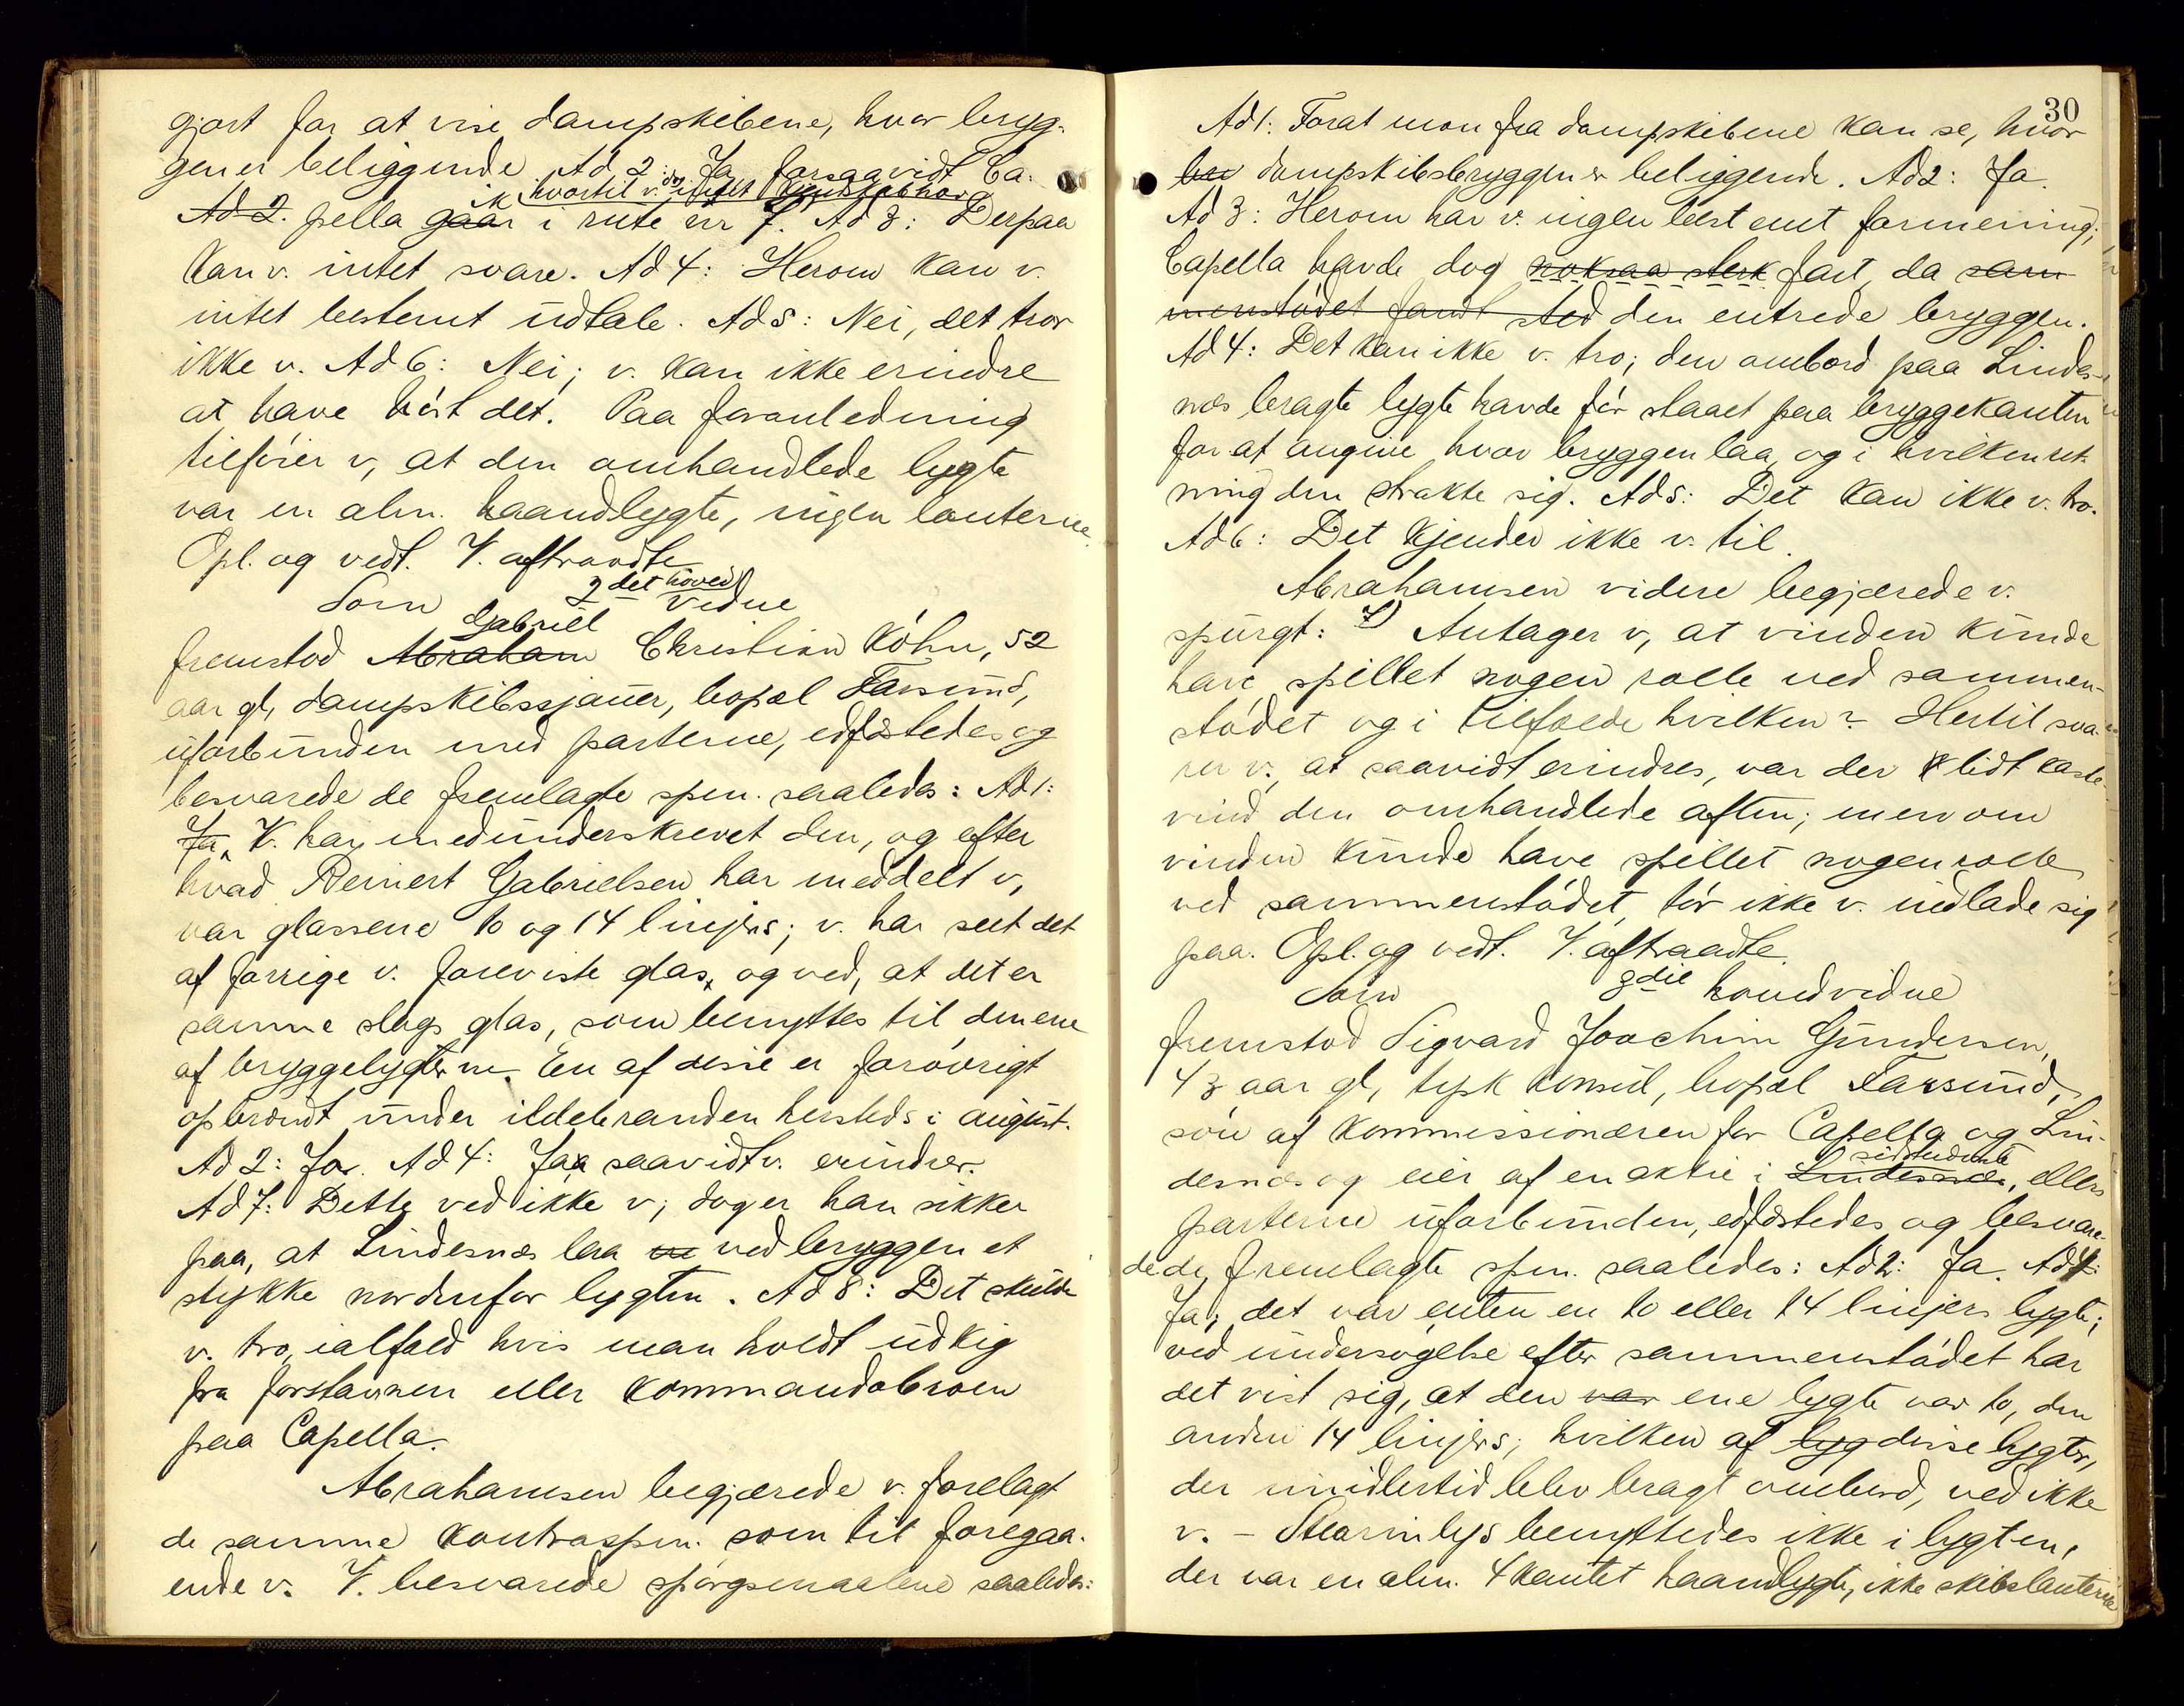 gjort for at vise dampskibene, hvor bryg-
gen er beliggende. Ad 2: Ja, forsaavidt Ca-
ik hvortil v. dog intet kjendskab har
Ad 2. pella gaar i rute nr 7. Ad 3: Derpaa
kan v. intet svare. Ad 4: Herom kan v.
intet bestemt udtale. Ad 5: Nei, det tror
ikke v. Ad 6: Nei; v. kan ikke erindre
at have hört det. Paa foranledning
tilföier v, at den omhandlede lygte
var en alm. haandlygte, ingen lanterne.
Opl. og vedt. V. aftraadte
Som 2det hoved
vidne
Gabriel
fremstod Abraham Christian Köhn, 52
aar gl, dampskibssjauer, bopæl Farsund,
uforbunden med parterne, edfæstedes og
besvarede de fremlagte spm. saaledes: Ad 1:
Ja, V. har medunderskrevet den, og efter
hvad Reinert Gabrielsen har meddelt v,
var glassene 10 og 14 linjers; v. har seet det
af forrige v. foreviste glas, og ved, at det er
samme slags glas, som benyttes til den ene
af bryggelygterne. En af disse er forövrigt
opbrændt under ildebranden hersteds i august.
Ad 2: Ja. Ad 4: Ja, saavidt v. erindrer.
Ad 7: Dette ved ikke v; dog er han sikker
paa, at Lindesnæs laa ved bryggen et
stykke nordenfor lygten. Ad 8: Det skulde
v. tro, ialfald hvis man holdt udkig
fra forstavnen eller kommandobroen
paa Capella.
Abrahamsen begjærede v. forelagt
de samme kontraspm. som til foregaa-
ende v. V. besvarede spörgsmaalene saaledes:
30
Ad 1: Forat man fra dampskibene kan se, hvor
dampskibsbryggen er beliggende. Ad 2: Ja.
Ad 3: Herom har v. ingen bestemt formening;
Capella havde dog noksaa sterk fart, da sam-
menstödet fandt sted den entrede bryggen.
Ad 4: Det kan ikke v. tro; den ombord paa Lindes-
næs bragte lygte havde för staaet paa bryggekanten
for at angive hvor bryggen laa og i hvilken ret-
ning den strakte sig. Ad 5: Det kan ikke v. tro.
Ad 6: Det kjender ikke v. til.
Abrahamsen videre begjærede v.
spurgt: 7) Antager v, at vinden kunde
have spillet nogen rolle ved sammen-
stödet og i tilfælde hvilken? Hertil sva-
rer v., at saavidt erindres, var der lidt kaste-
vind den omhandlede aften; men om
vinden kunde have spillet nogen rolle
ved sammenstödet, tör ikke v. indlade sig
paa. Opl. og vedt. V. aftraadte.
Som 3die hovedvidne
fremstod Sigvard Joachim Gundersen,
43 aar gl, tysk konsul, bopæl Farsund,
sön af kommissionæren for Capella og Lin-
sidstnævnte
desnæs og eier af en aktie i Lindesnæs, ellers
parterne uforbunden, edfæstedes og besvare-
de de fremlagte spm. saaledes: Ad 2: Ja. Ad 4:
Ja; det var enten en 10 eller 14 linjers lygte;
ved undersögelse efter sammenstödet har
det vist sig, at den var ene lygte var 10, den
anden 14 linjers; hvilken af lyg disse lygter,
der imidlertid blev bragt ombord, ved ikke
v. - Stearinlys benyttedes ikke i lygten,
der var en alm. 4kantet haandlygte, ikke skibslanterne